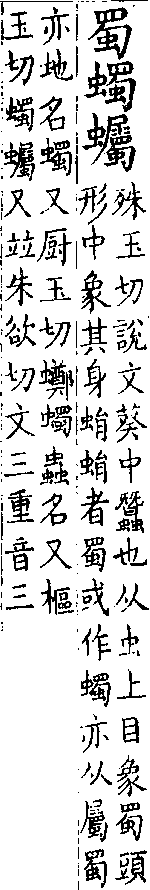 蜀蠋蠾
殊玉切說文葵中蠶也从虫上目象蜀頭
形中象其身蜎蜎者蜀或作蠋亦从屬蜀
亦地名蠋又厨玉切𧕄蠋蟲名又樞
玉切蠋蠾又竝朱欲切文三重音三